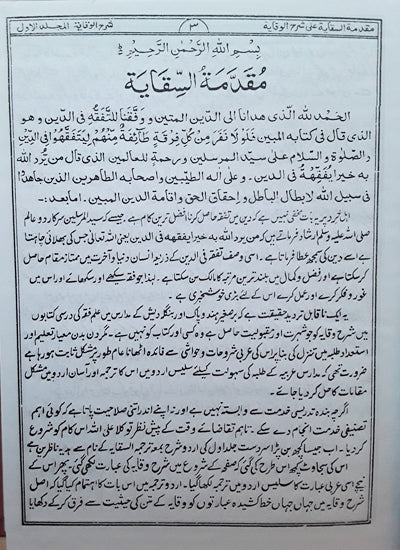 مقدمة السقایة علی شرح الوقایة ۳ شرح الوقایة المجلد الاول
بِسْمِ اللهِ الرَّحْمٰنِ الرَّحِيْمِ
مُقَدَّمَةُ السِّقَايَة
الحَمْد لله الَّذى هدانا الى الدِّين المتين و وفَّقنا للتَّفَقُّه فى الدِّين وهو
الذى قال فى كتابه المبين فَلَوْلَا نَفَرَ مِنْ كُلِّ فِرْقَةٍ مِّنْهُمْ طَآئِفَةٌ لِيَتَفَقَّهُوْا فِى الدِّيْنِ
والصَّلوة والسَّلام على سيِّد المرسلين ورحمةٍ للعالمين الذى قال من يُّرد الله
به خيرا يفقِّهْهُ فى الدين۔ وعلى اٰله الطيّبين واصحابه الطاهرين الذين جاهدوا
فى سبيل الله لابطال الباطل و احقاق الحق واقامة الدين المبين۔ اما بعد:۔
اہل خرد پر یہ بات مخفی نہیں ہے کہ دین میں تفقہ حاصل کرنا افضل ترین کام ہے۔ جیسے کہ سید المرسلین سرکار دو عالم
صلی اللہ علیہ وسلم ارشاد فرماتے ہیں کہ من یرد اللہ به خیرا یفقهه فی الدین یعنی اللہ تعالی جس کی بھلائی چاہتا
ہے اسے دین کی سمجھ عطا فرماتا ہے۔ اسی وصف تفقہ فی الدین کے ذریعہ انسان دنیا و آخرت میں ممتاز مقام حاصل
کرسکتا ہے اور فضل و کمال میں بلند ترین مرتبہ کا مالک بن سکتا ہے۔ لہذا جو فقہ سیکھے اور سکھائے اور اس میں
غور و فکر کرے اور عمل کرے اس کے لئے بڑی خوشخبری ہے۔
یہ ایک ناقابل تردید حقیقت ہے کہ برصغیر ہند و پاک اور بنگلہ دیش کے مدارس میں علم فقہ کی درسی کتابوں
میں شرح وقایہ کو جو شہرت اور مقبولیت حاصل ہے وہ کسی اور کتاب کو نہیں ہے۔ مگر دن بدن معیار تعلیم اور
استعداد طلبہ میں تنزل کی بنا پر اس کی عربی شروحات و حواشی سے فائدہ اٹھانا عام طور پر مشکل ثابت ہو رہا ہے
ضرورت تھی کہ مدارس عربیہ کے طلبہ کی سہولت کیلئے سلیس اردو میں اس کا ترجمہ اور آسان اردو میں مشکل
مقامات کا حل کردیا جائے۔
اگرچہ بندہ تدریسی خدمت سے وابستہ نہیں ہے اور نہ اپنے اندر اتنی صلاحیت پاتا ہے کہ کوئی اہم
تصنیفی خدمت انجام دے سکے۔ تاہم تقاضائے وقت کے پیش نظر توکلا علی اللہ اس کام کو شروع
کردیا۔ اب جیسا کچھ بن پڑا سردست جلد اول کی اردو شرح مع ترجمہ السقایہ کے نام سے ہدیہ ناظرین ہے
اس کی سجاوٹ کچھ اس طرح کی گئی کہ صفحے کے شروع میں شرح وقایہ کی عبارت لکھی گئی پھر اس کے
نیچے اسی عربی عبارت کا سلیس اردو میں ترجمہ لکھا گیا۔ اردو ترجمہ میں اس بات کا اہتمام کیا گیا کہ اصل
شرح وقایہ میں جہاں جہاں خط کشیدہ عبارتوں کو وقایہ کے متن کی حیثیت سے فرق کر کے دکھایا